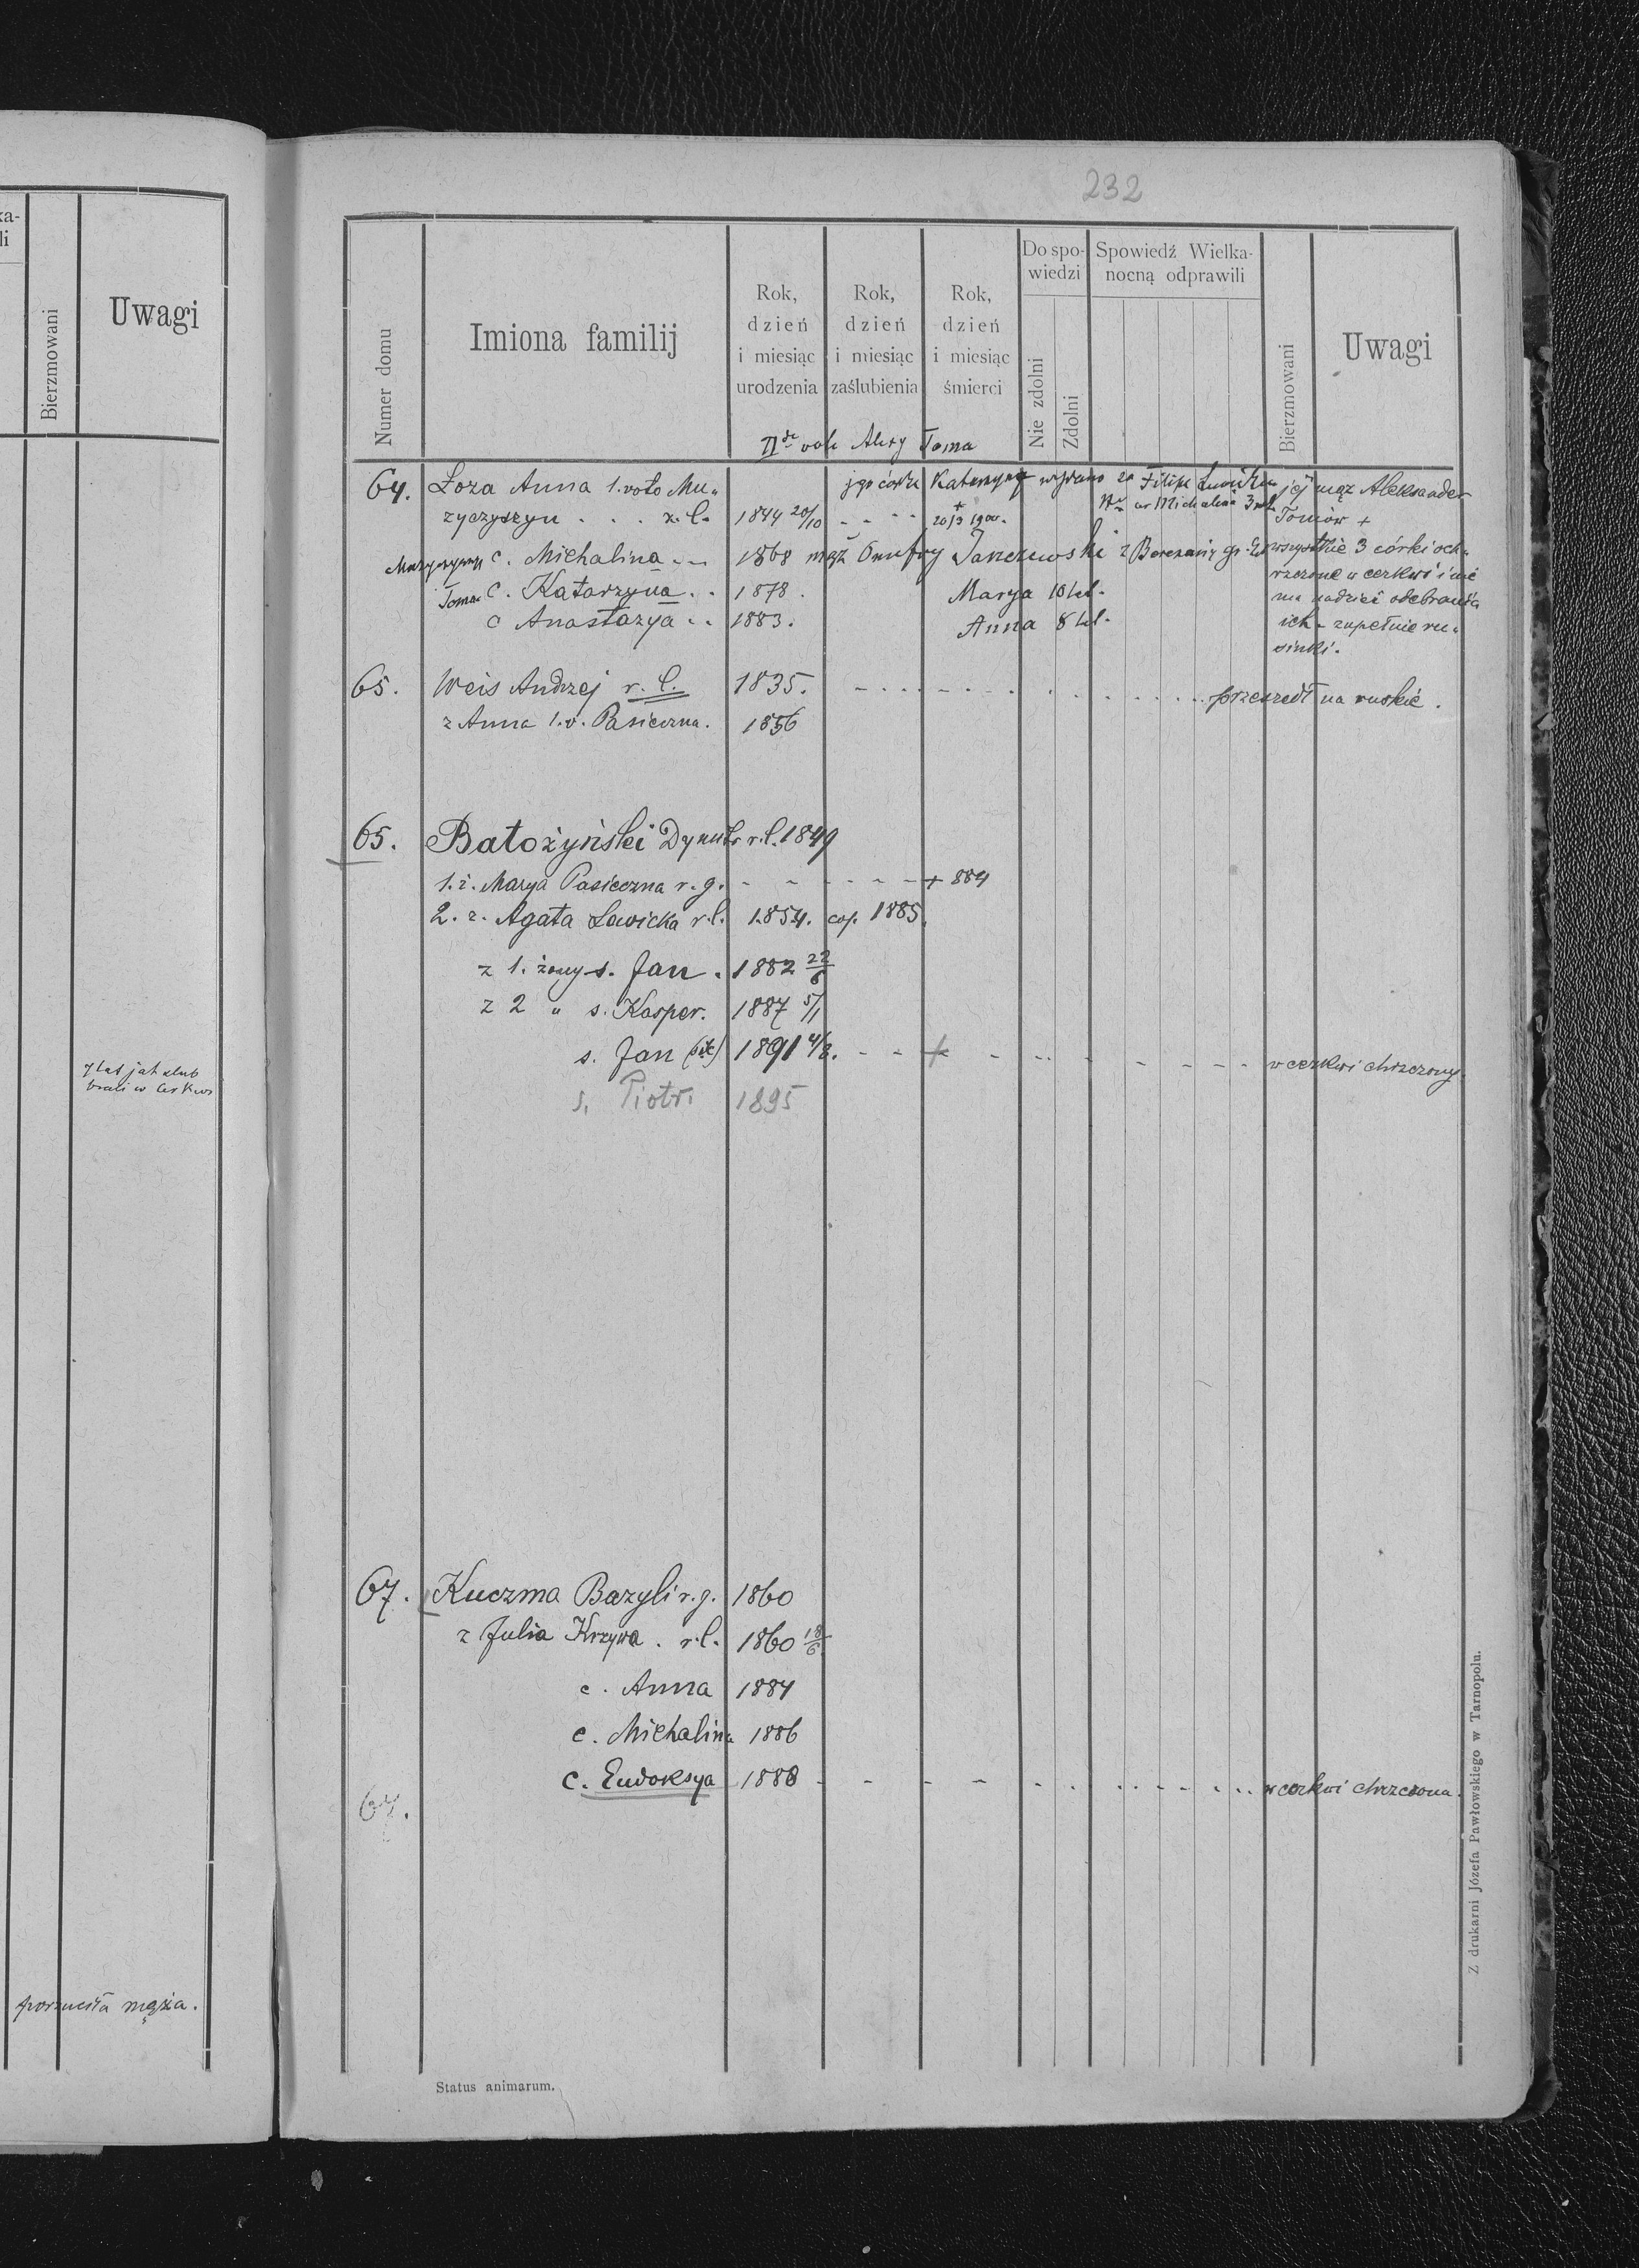 ka-
li
Bierzmowani
Uwagi
7 lat jak ślub
brali w cerkwi
porzuciła męża.
232
Numer domu
Imiona familij
Rok,
dzień
i miesiąc
urodzenia
Rok,
dzień
i miesiąc
zaślubienia
Rok,
dzień
i miesiąc
śmierci
Do spo-
wiedzi
Nie zdolni
Zdolni
Spowiedź Wielka-
nocną odprawili
Bierzmowani
Uwagi
II de voto Alexy Toma
64. Łoza Anna 1. voto Mu„ jego córka Katarzyna wydana za Filipa jej mąż Aleksander
zyczyszyn . . . r. l. 1844 20/10 - - - - + 20/3 1900. Michalina Tomów +
c. Michalina - - 1868 mąż Onufry Janczewski z gr. wszystkie 3 córki och„
rzczone w cerkwi i nie
Toma c. Katarzyna . . 1878. Marya 10 lat. ma nadziei odebrania
c Anastazya . . 1883. Anna 8 lat. ich - zupełnie ru„
sinki.
65. Weis Andrzej r. l. 1835. - . . . - . . . . . . . . . przeszedł na ruskie.
z Anna 1. v. Pasieczna. 1856
65. Batożyński Dymitr r. l. 1849
1. ż. Marya Pasieczna r. g. - - - - - + 884
2. ż. Agata Ławicka r. l. 1854. cop. 1885.
z 1. żony s. Jan . 1882 22/6
z 2 „ s. Kasper. 1887 5/1
s. Jan (sic) 1891 4/8. - - + - - - - - - - w cerkwi chrzczony.
s. Piotr. 1895
67. Kuczma Bazyli r. g. 1860
z Julia Krzywa . r. l. 1860 18/6
c. Anna 1884
c. Michalina 1886
c. Eudoksya 1888 - - - - - - - - - - w cerkwi chrzczona.
67.
Status animarum.
Z drukarni Józefa Pawłowskiego w Tarnopolu.